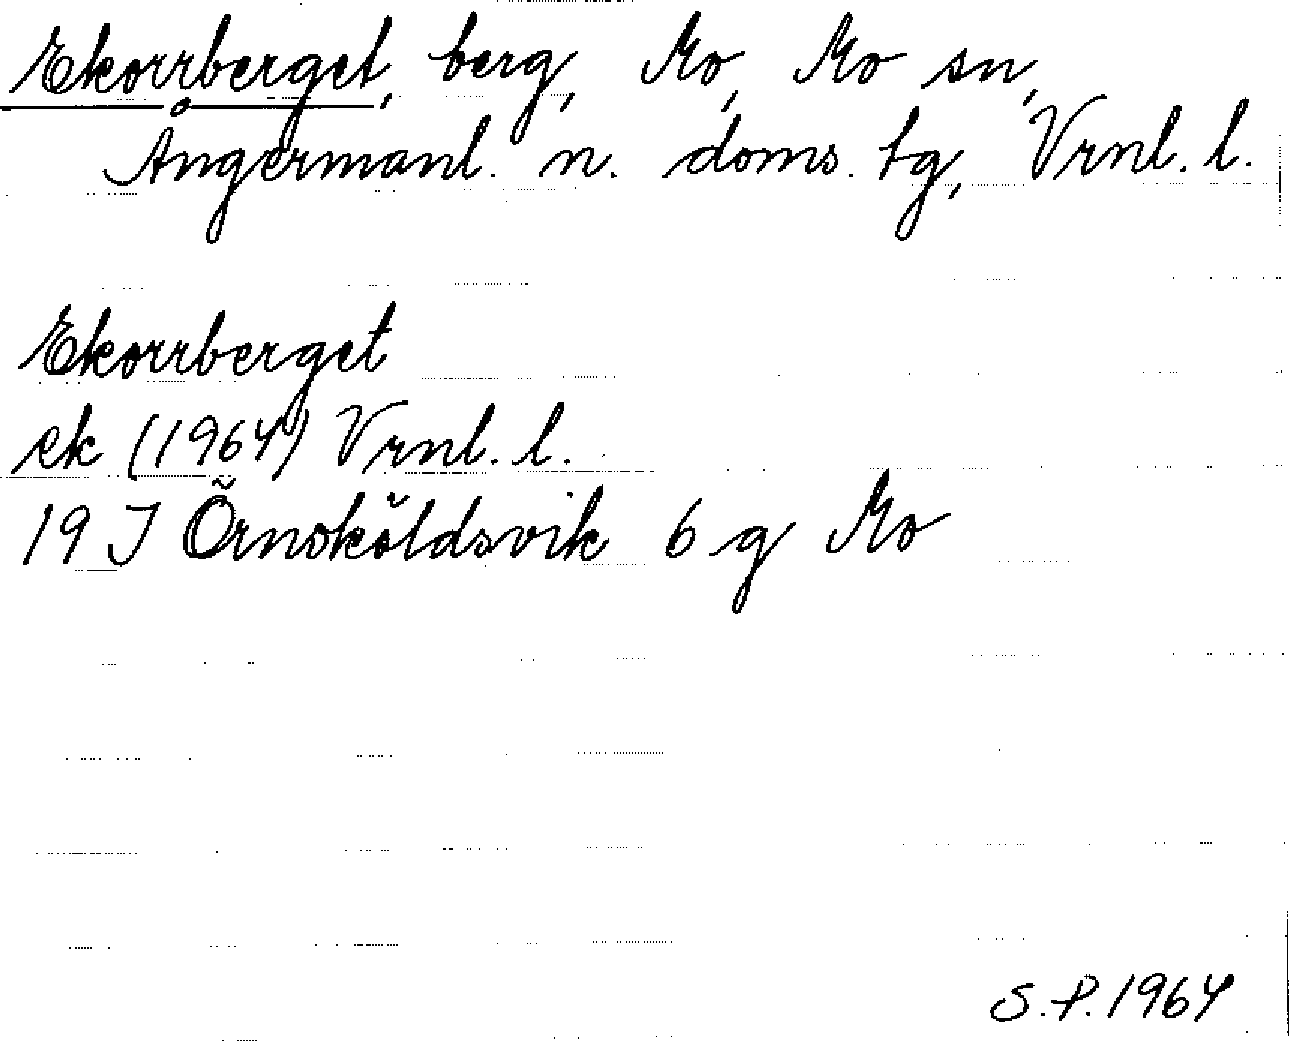 Ekorrberget, berg, Mo, Mo sn,
Ångermanl. n. doms. tg, Vrnl. l.
Ekorrberget
ek (1964) Vrnl. l.
19 J Örnsköldsvik 6 g Mo
S.P. 1964